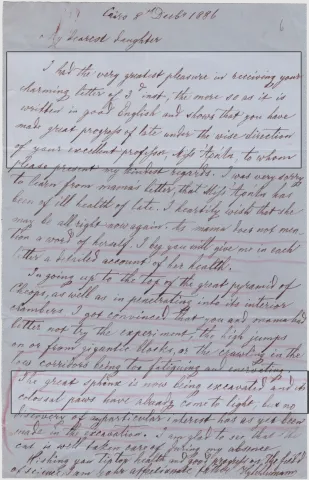 Cairo 8th Decbr 1886
6
My dearest daughter
I had the very greatest pleasure in receiving your
charming letter of 3d inst, the more so as it is
written in good English and shows that you have
made great progress of late under the wise direction
of your excellent professor, Miss to whom
please present my kindest regards. I was very sorry
to learn from mama's letter, that Miss has
been of ill health of late. I heartily wish that she
may be all right now again. As mama does not men
tion a word of herself, I beg you will give me in each
letter a detailed account of her health.
In going up to the top of the great pyramid of
Cheops, as well as in penetrating into its interior
chambers, I got convinced that you and mama had
better not try the experiment, the high jumps
on or from gigantic blocks, or the crawling in the
low corridors being too fatiguing and
The great sphinx is now being excavated and its
colosal paws have already come to light, but no
discovery of any particular interest has as yet been
made in the excavation. I am glad to see that the
cat is well taken care of during my absence.
Wishing you tiptop health and good progress on the field
of science, I am your affectionate father